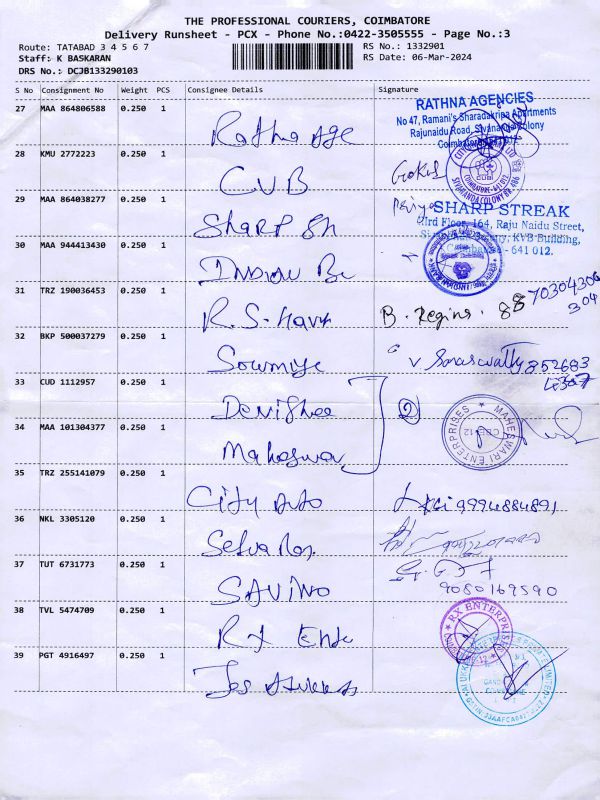 THE PROFESSIONAL COURIERS, COIMBATORE
Delivery Runsheet - PCX - Phone No.:0422-3505555 - Page No.:3
Route: TATABAD 3 4 5 6 7
RS No.: 1332901
Staff: K BASKARAN
RS Date: 06-Mar-2024
DRS No.: DCJB133290103
S No Consignment No Weight PCS Consignee Details Signature
27 MAA 864806588 0.250 1
Ratha Age
RATHNA AGENCIES
No 47, Ramani's Sharadakripa Apartments
Rajunaidu Road, Sivananda Colony
28 KMU 2772223 0.250 1
CUB
Gokul
SIVANANDA COLONY BR. 486
COIMBATORE-641 012
CUB
29 MAA 864038277 0.250 1
Sharp Sh
SHARP STREAK
IIIrd Floor, 164, Raju Naidu Street,
KVB Building,
Coimbatore - 641 012.
30 MAA 944413430 0.250 1
31 TRZ 190036453 0.250 1
R.S.
B. Regins. 88 70304306
304
32 BKP 500037279 0.250 1
Sowmiya
V 852683
4307
33 CUD 1112957 0.250 1
2
34 MAA 101304377 0.250 1
Maheswar
MAHESWARI ENTERPRISES
CBE-12
35 TRZ 255141079 0.250 1
City Auto
9994884891
36 NKL 3305120 0.250 1
Selva
37 TUT 6731773 0.250 1
SAVINO
9080169590
38 TVL 5474709 0.250 1
RX Ente
RX ENTERPRISES
39 PGT 4916497 0.250 1